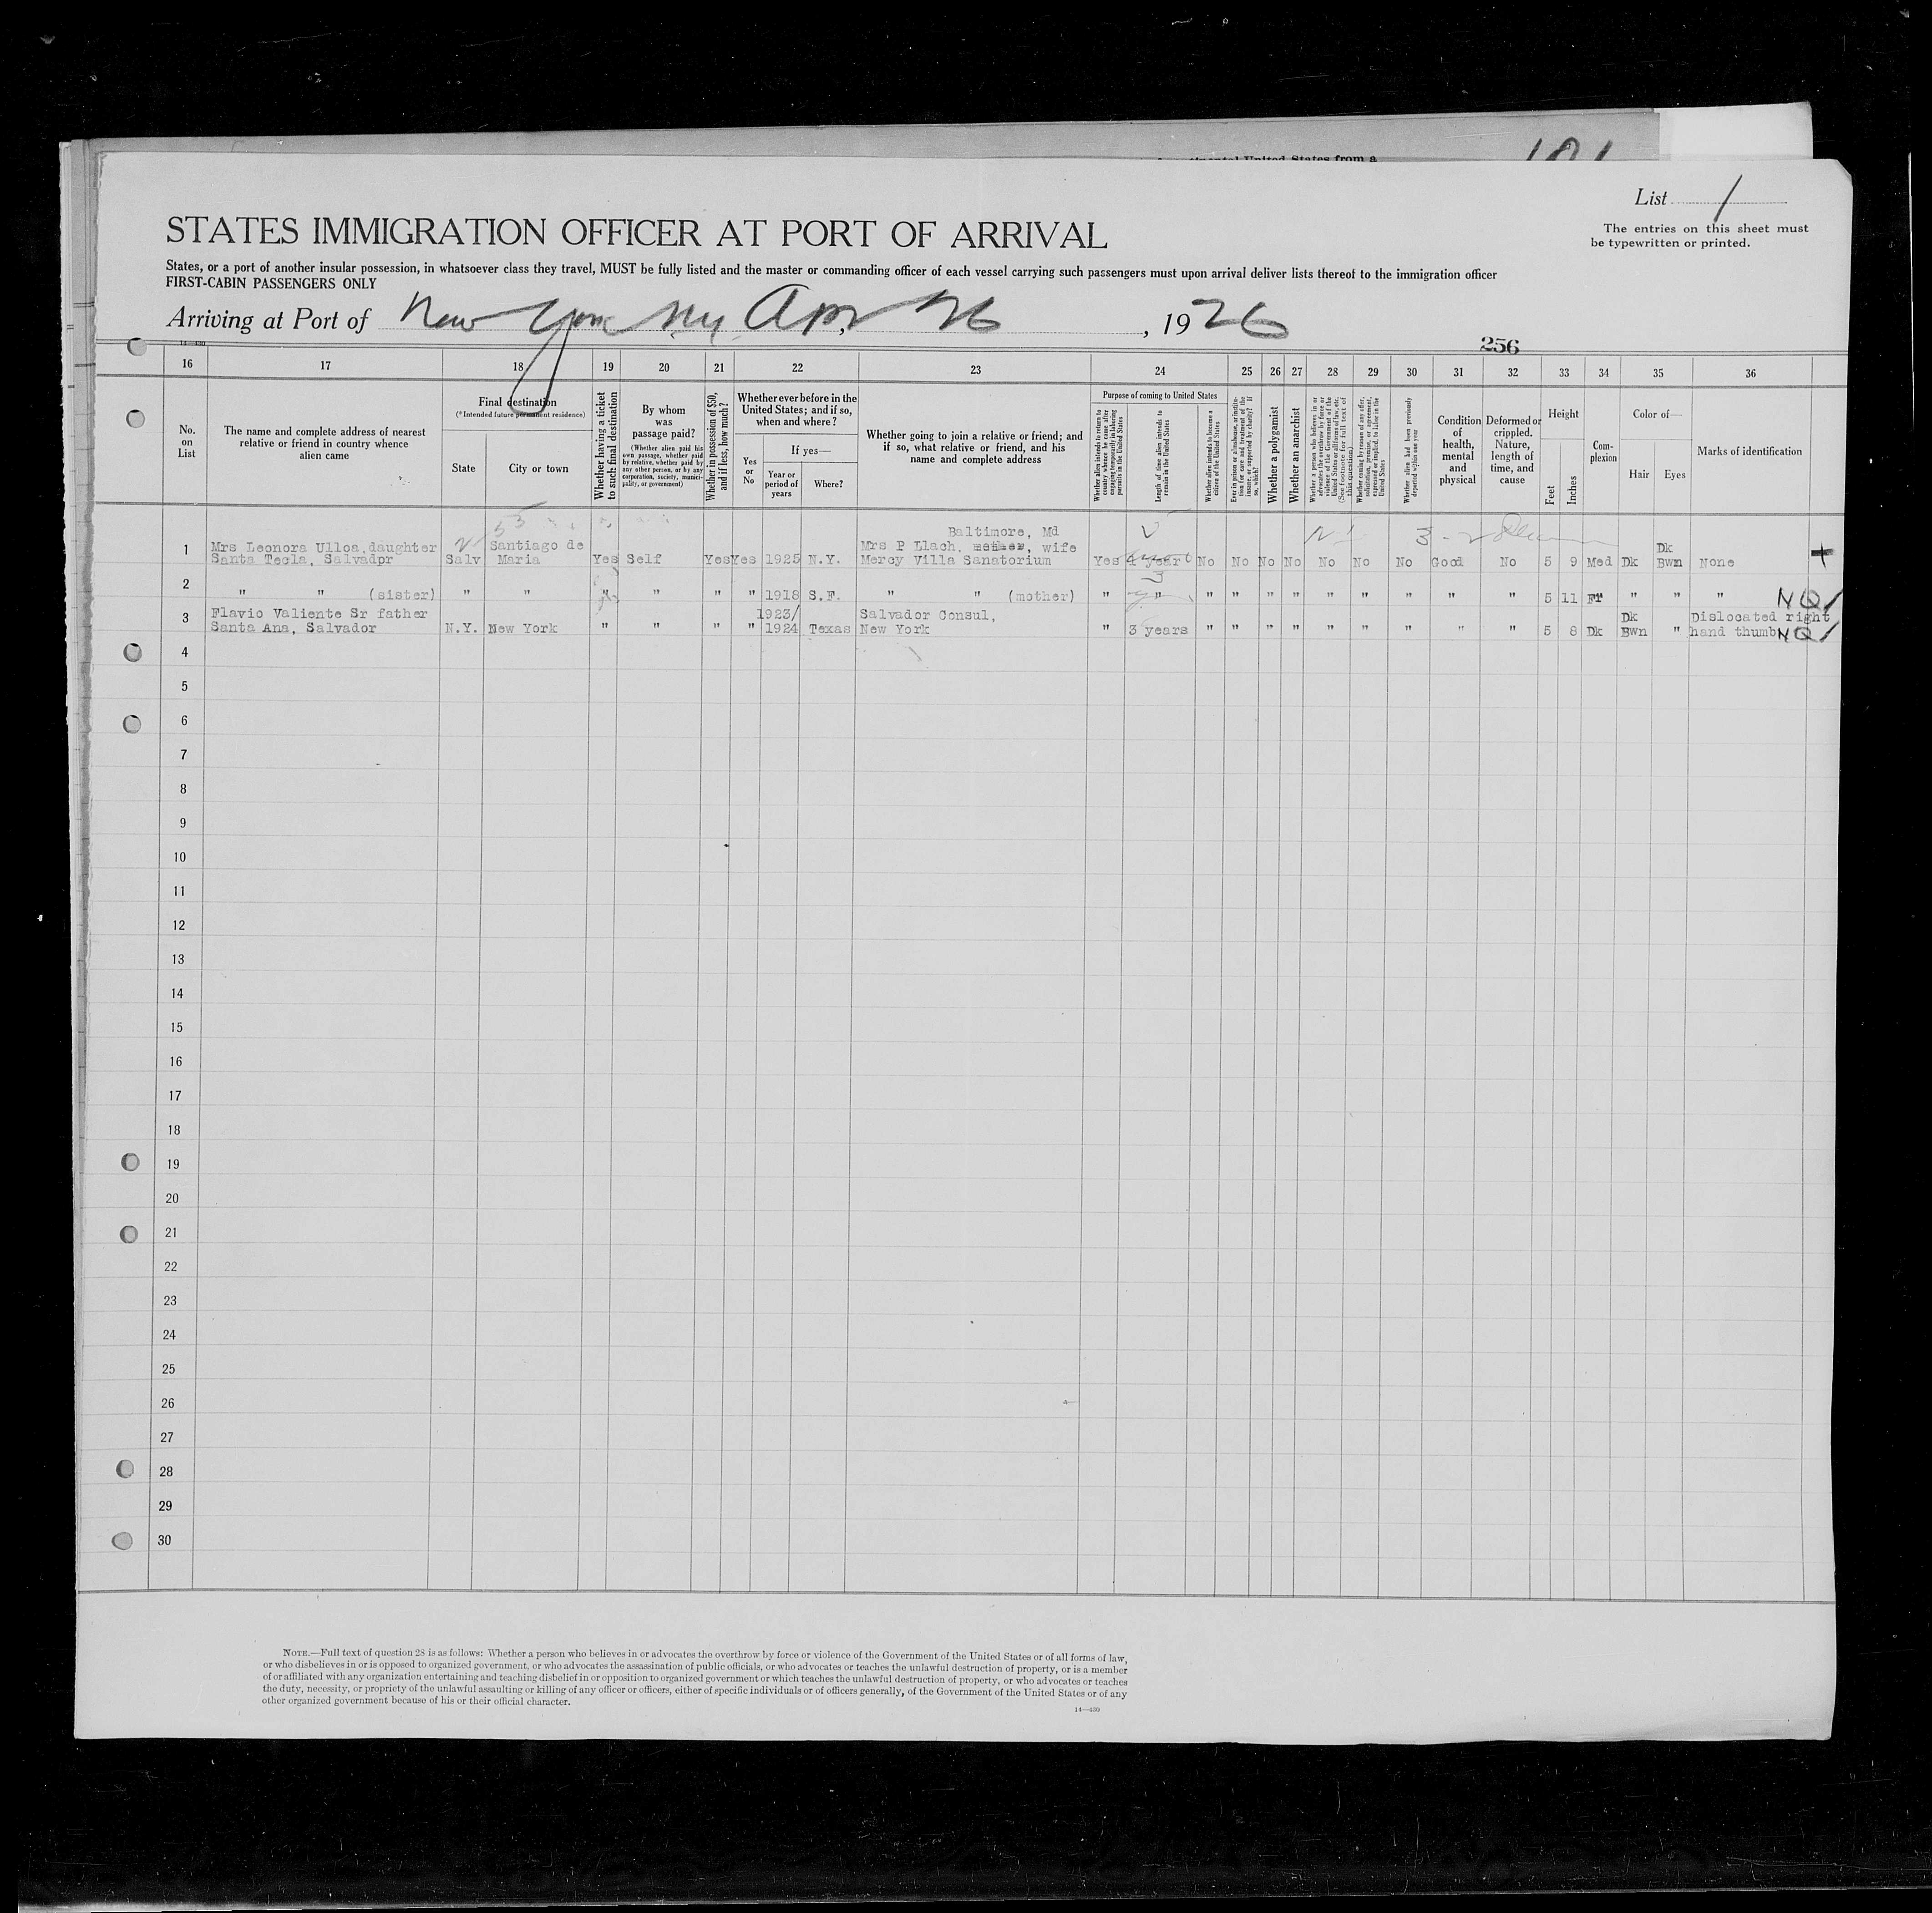 List 1
The entries on this sheet must
be typewritten or printed.
STATES IMMIGRATION OFFICER AT PORT OF ARRIVAL
States, or a port of another insular possession, in whatsoever class they travel, MUST be fully listed and the master or commanding officer of each vessel carrying such passengers must upon arrival deliver lists thereof to the immigration officer
FIRST-CABIN PASSENGERS ONLY
Arriving at Port of New York Ny Apr 26, 1926
256
16 17 18 19 20 21 22 23 24 25 26 27 28 29 30 31 32 33 34 35 36
No. on List
The name and complete address of nearest relative or friend in country whence alien came
Final destination
(*Intended future permanent residence)
State
City or town
Whether having a ticket to such final destination
By whom was passage paid?
(Whether alien paid his own passage, whether paid by relative, whether paid by any other person, or by any corporation, society, municipality, or government)
Whether in possession of $50, and if less, how much?
Whether ever before in the United States; and if so, when and where?
Yes or No
If yes—
Year or period of years
Where?
Whether going to join a relative or friend; and if so, what relative or friend, and his name and complete address
Purpose of coming to United States
Whether alien intends to return to country whence he came after engaging temporarily in laboring pursuits in the United States
Length of time alien intends to remain in the United States
Whether alien intends to become a citizen of the United States
Ever in prison or almshouse, or institution for care and treatment of the insane, or supported by charity? If so, which?
Whether a polygamist
Whether an anarchist
Whether a person who believes in or advocates the overthrow by force or violence of the Government of the United States or all forms of law, etc. (See footnote for full text of this question)
Whether coming by reason of any offer, solicitation, promise, or agreement, expressed or implied, to labor in the United States
Whether alien had been previously deported within one year
Condition of health, mental and physical
Deformed or crippled. Nature, length of time, and cause
Height
Feet
Inches
Complexion
Color of—
Hair
Eyes
Marks of identification
1 Mrs Leonora Ulloa, daughter Santiago de Baltimore, Md
Mrs P Llach, wife Dk
Santa Tecla, Salvadpr Salv Maria Yes Self Yes Yes 1925 N.Y. Mercy Villa Sanatorium Yes year No No No No No No No Good No 5 9 Med Dk Bwn None
2 " " (sister) " " " " " " 1918 S.F. " " (mother) " " " " " " " " " " " 5 11 Fr " " " NQ/
3 Flavio Valiente Sr father 1923/ Salvador Consul, Dk Dislocated right
Santa Ana, Salvador N.Y. New York " " " " 1924 Texas New York " 3 years " " " " " " " " " 5 8 Dk Bwn " hand thumb NQ/
4
5
6
7
8
9
10
11
12
13
14
15
16
17
18
19
20
21
22
23
24
25
26
27
28
29
30
NOTE.—Full text of question 28 is as follows: Whether a person who believes in or advocates the overthrow by force or violence of the Government of the United States or of all forms of law,
or who disbelieves in or is opposed to organized government, or who advocates the assassination of public officials, or who advocates or teaches the unlawful destruction of property, or is a member
of or affiliated with any organization entertaining and teaching disbelief in or opposition to organized government or which teaches the unlawful destruction of property, or who advocates or teaches
the duty, necessity, or propriety of the unlawful assaulting or killing of any officer or officers, either of specific individuals or of officers generally, of the Government of the United States or of any
other organized government because of his or their official character.
14—430